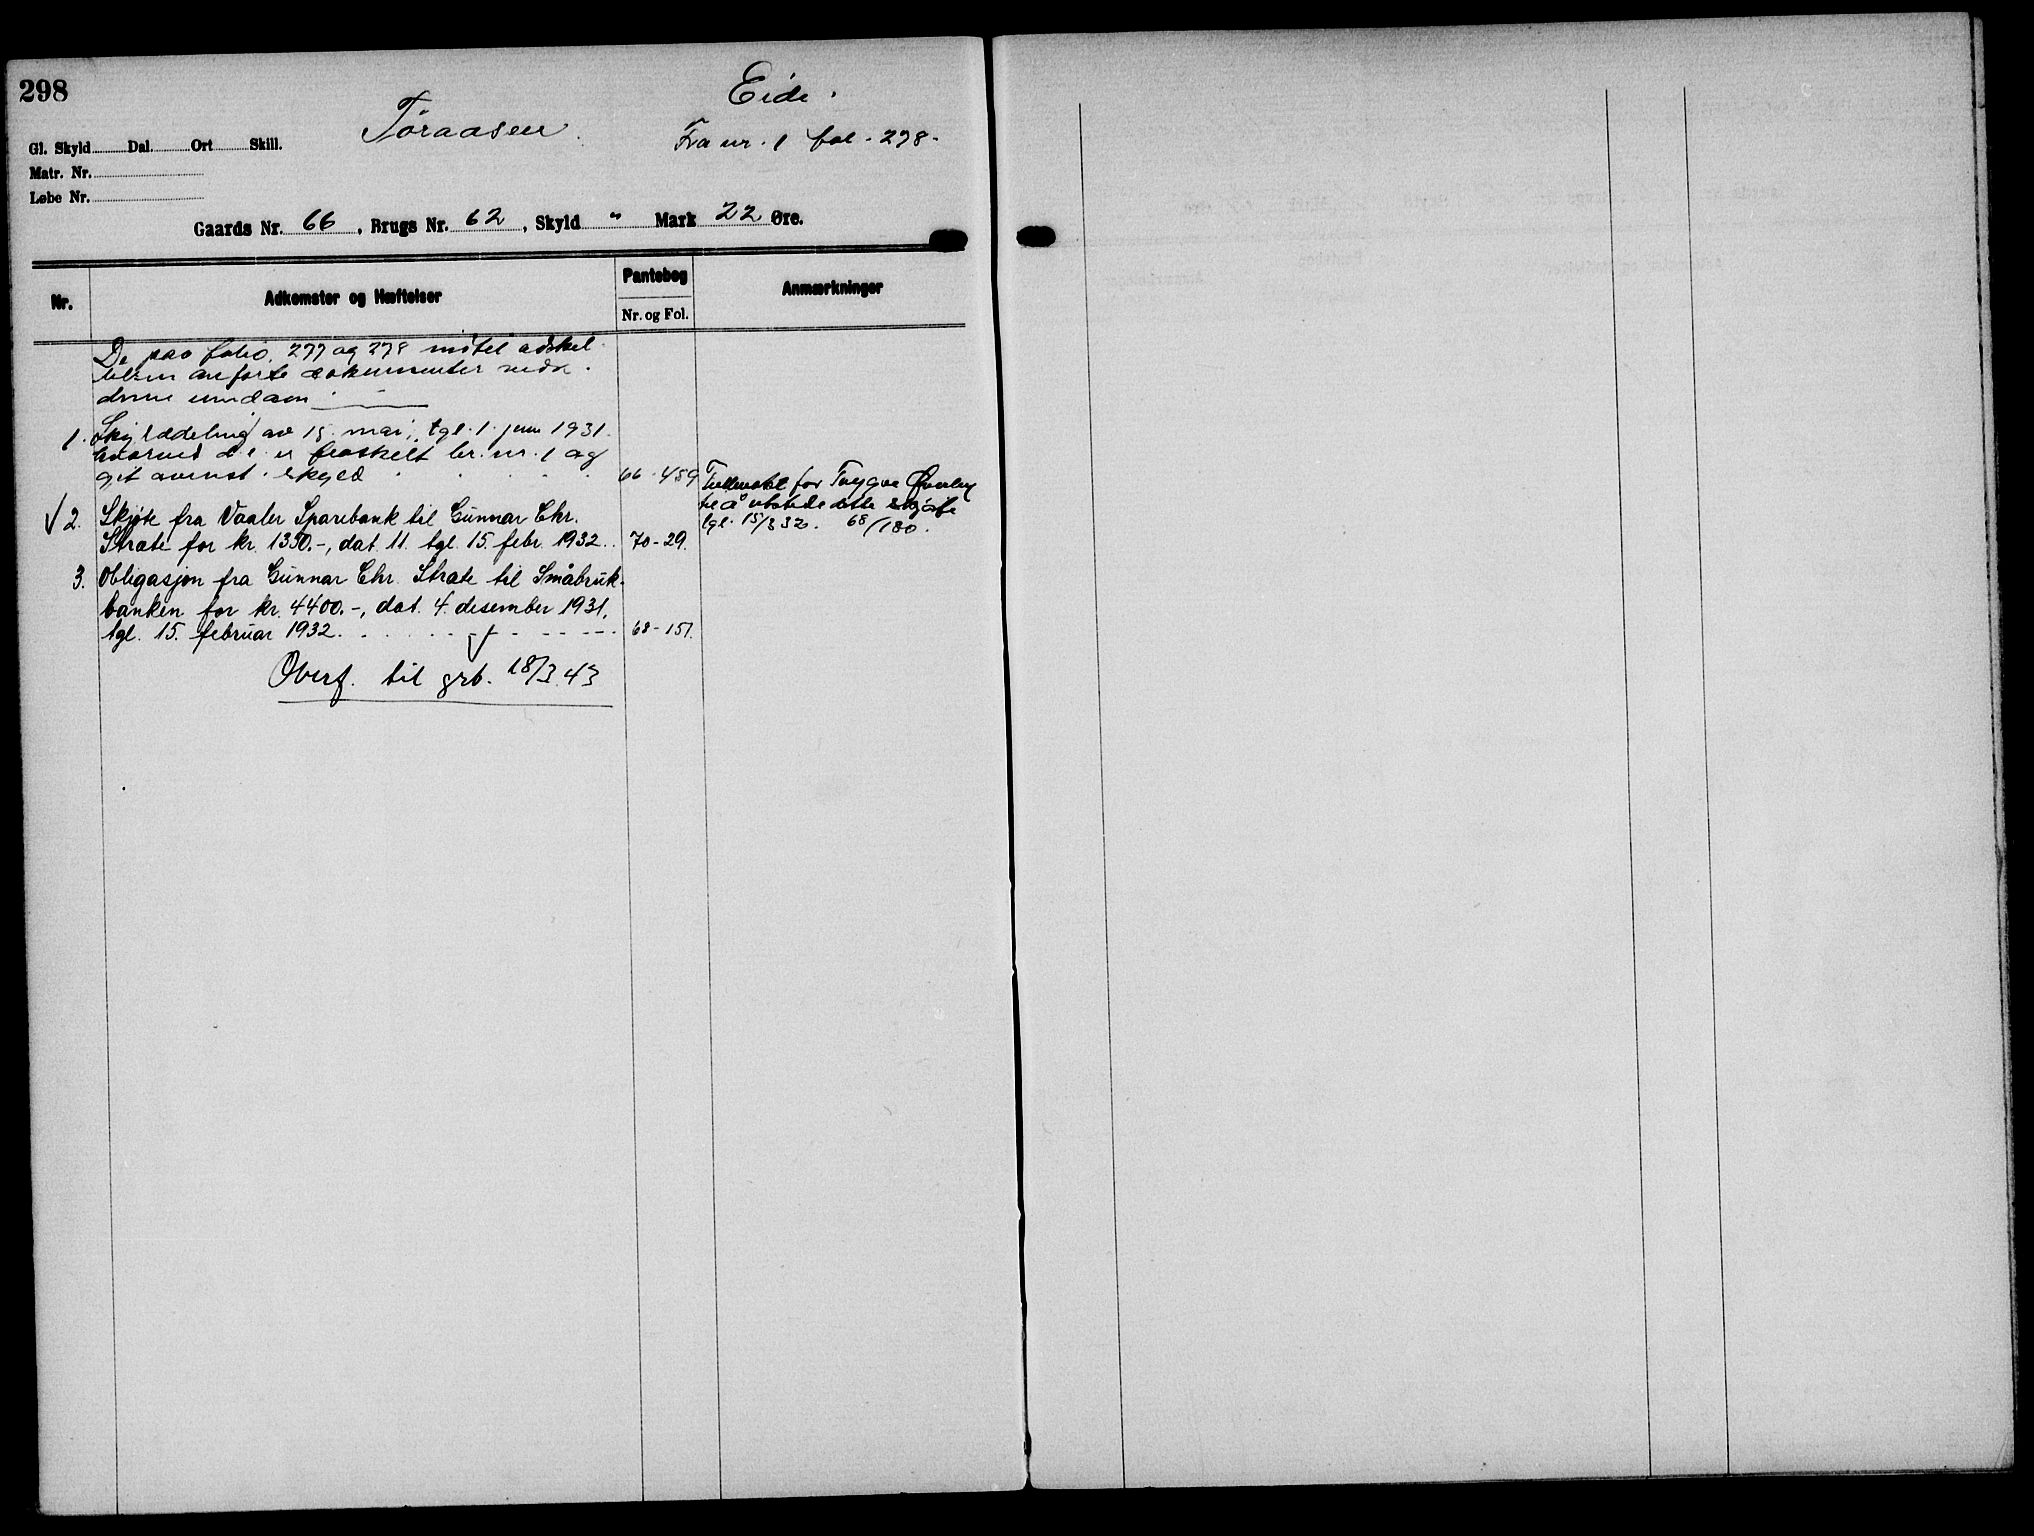 298
Eide.
Tøraasen
Fra nr. 1 fol. 278.
Gl. Skyld Dal. Ort Skill.
Matr. Nr.
Løbe Nr.
Gaards Nr. 66, Brugs Nr. 62, Skyld " Mark 22 Øre.
Nr. Adkomster og Hæftelser Pantebog Nr. og Fol. Anmærkninger
De paa folio 277 og 278 indtil adskil-
lelsen anførte dokumenter vedr.
denne eiendom
1. Skylddeling av 15. mai, tgl. 1. juni 1931
hvorved d.e. er fraskilt br. nr. 1 og
git avenst. skyld 66-459
Fullmakt for Trygve
til å utstede dette skjøte
tgl. 15/3 32. 68/180.
√ 2. Skjøte fra Vaaler Sparebank til Gunnar Chr.
Stræte for kr. 1350.-, dat. 11. tgl. 15. febr. 1932. 70-29.
3. Obligasjon fra Gunnar Chr. Stræte til Småbruk-
banken for kr. 4400.-, dat. 4. desember 1931,
tgl. 15. februar 1932. 68-151.
Overf. til grb. 18/3.43